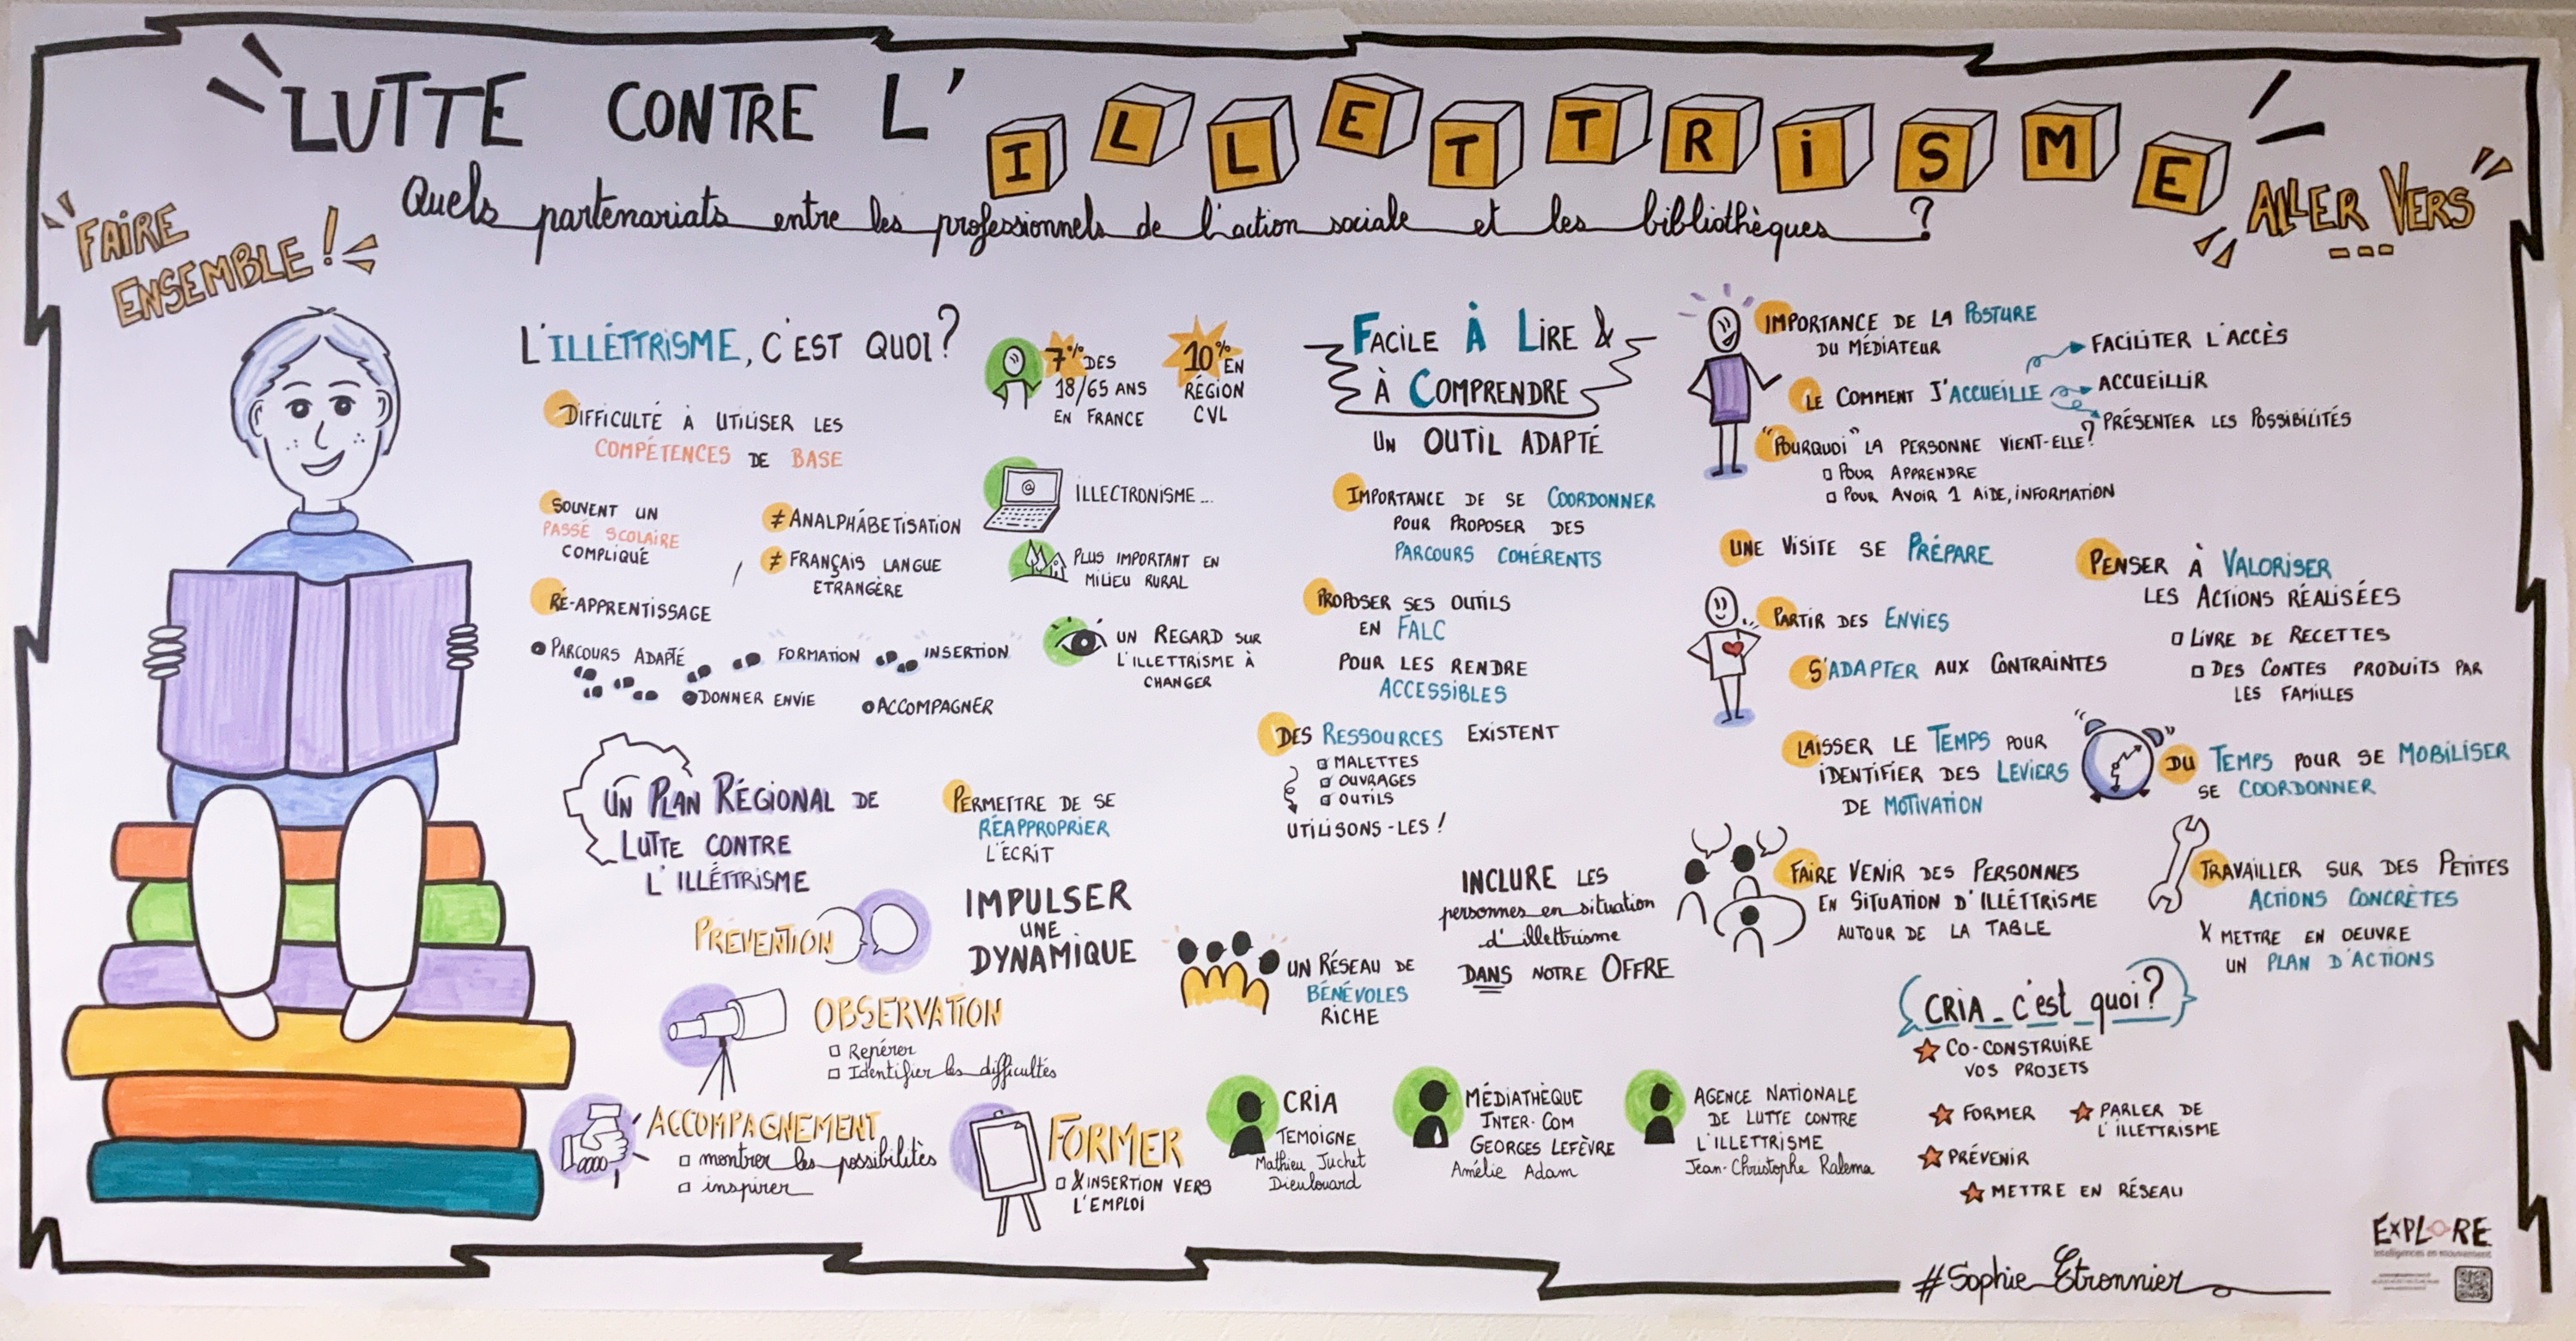 LUTTE CONTRE L'ILLETTRiSME
Quels partenariats entre les professionnels de l'action sociale et les bibliothèques ?
FAIRE
ENSEMBLE !
ALLER VERS
...
L'ILLÉTTRiSME, C'EST QUOI ?
DIFFICULTÉ À UTILISER LES
COMPÉTENCES DE BASE
SOUVENT UN
PASSÉ SCOLAIRE
COMPLIQUÉ
≠ ANALPHABÉTISATION
≠ FRANÇAIS LANGUE
ETRANGÈRE
RÉ-APPRENTISSAGE
PARCOURS ADAPTÉ
FORMATION
INSERTION
DONNER ENVIE
ACCOMPAGNER
7% DES
18/65 ANS
EN FRANCE
10% EN
RÉGION
CVL
ILLECTRONISME...
PLUS IMPORTANT EN
MILIEU RURAL
UN REGARD SUR
L'ILLETTRISME À
CHANGER
UN PLAN RÉGIONAL DE
LUTTE CONTRE
L'ILLÉTTRISME
PERMETTRE DE SE
RÉAPPROPRIER
L'ÉCRIT
PRÉVENTION
IMPULSER
UNE
DYNAMIQUE
OBSERVATION
Repérer
Identifier les difficultés
ACCOMPAGNEMENT
montrer les possibilités
inspirer
FORMER
& INSERTION VERS
L'EMPLOI
FACILE À LIRE &
À COMPRENDRE
UN OUTIL ADAPTÉ
IMPORTANCE DE SE COORDONNER
POUR PROPOSER DES
PARCOURS COHÉRENTS
PROPOSER SES OUTILS
EN FALC
POUR LES RENDRE
ACCESSIBLES
DES RESSOURCES EXISTENT
MALETTES
OUVRAGES
OUTILS
UTILISONS-LES !
UN RÉSEAU DE
BÉNÉVOLES
RICHE
INCLURE LES
personnes en situation
d'illettrisme
DANS NOTRE OFFRE
IMPORTANCE DE LA POSTURE
DU MÉDIATEUR
LE COMMENT J'ACCUEILLE
FACILITER L'ACCÈS
ACCUEILLIR
PRÉSENTER LES POSSIBILITÉS
"POURQUOI" LA PERSONNE VIENT-ELLE ?
POUR APPRENDRE
POUR AVOIR 1 AIDE, INFORMATION
UNE VISITE SE PRÉPARE
PARTIR DES ENVIES
S'ADAPTER AUX CONTRAINTES
PENSER À VALORISER
LES ACTIONS RÉALISÉES
LIVRE DE RECETTES
DES CONTES PRODUITS PAR
LES FAMILLES
LAISSER LE TEMPS POUR
IDENTIFIER DES LEVIERS
DE MOTIVATION
DU TEMPS POUR SE MOBILISER
SE COORDONNER
FAIRE VENIR DES PERSONNES
EN SITUATION D'ILLÉTTRISME
AUTOUR DE LA TABLE
TRAVAILLER SUR DES PETITES
ACTIONS CONCRÈTES
& METTRE EN OEUVRE
UN PLAN D'ACTIONS
CRIA_c'est quoi ?
CO-CONSTRUIRE
VOS PROJETS
FORMER
PARLER DE
L'ILLETTRISME
PRÉVENIR
METTRE EN RÉSEAU
CRIA
TEMOIGNE
Mathieu Juchet
Dieulouard
MÉDIATHÈQUE
INTER-COM
GEORGES LEFÈVRE
Amélie Adam
AGENCE NATIONALE
DE LUTTE CONTRE
L'ILLETTRISME
Jean-Christophe Ralema
EXPLORE
Intelligences en mouvement
#Sophie Etronnier